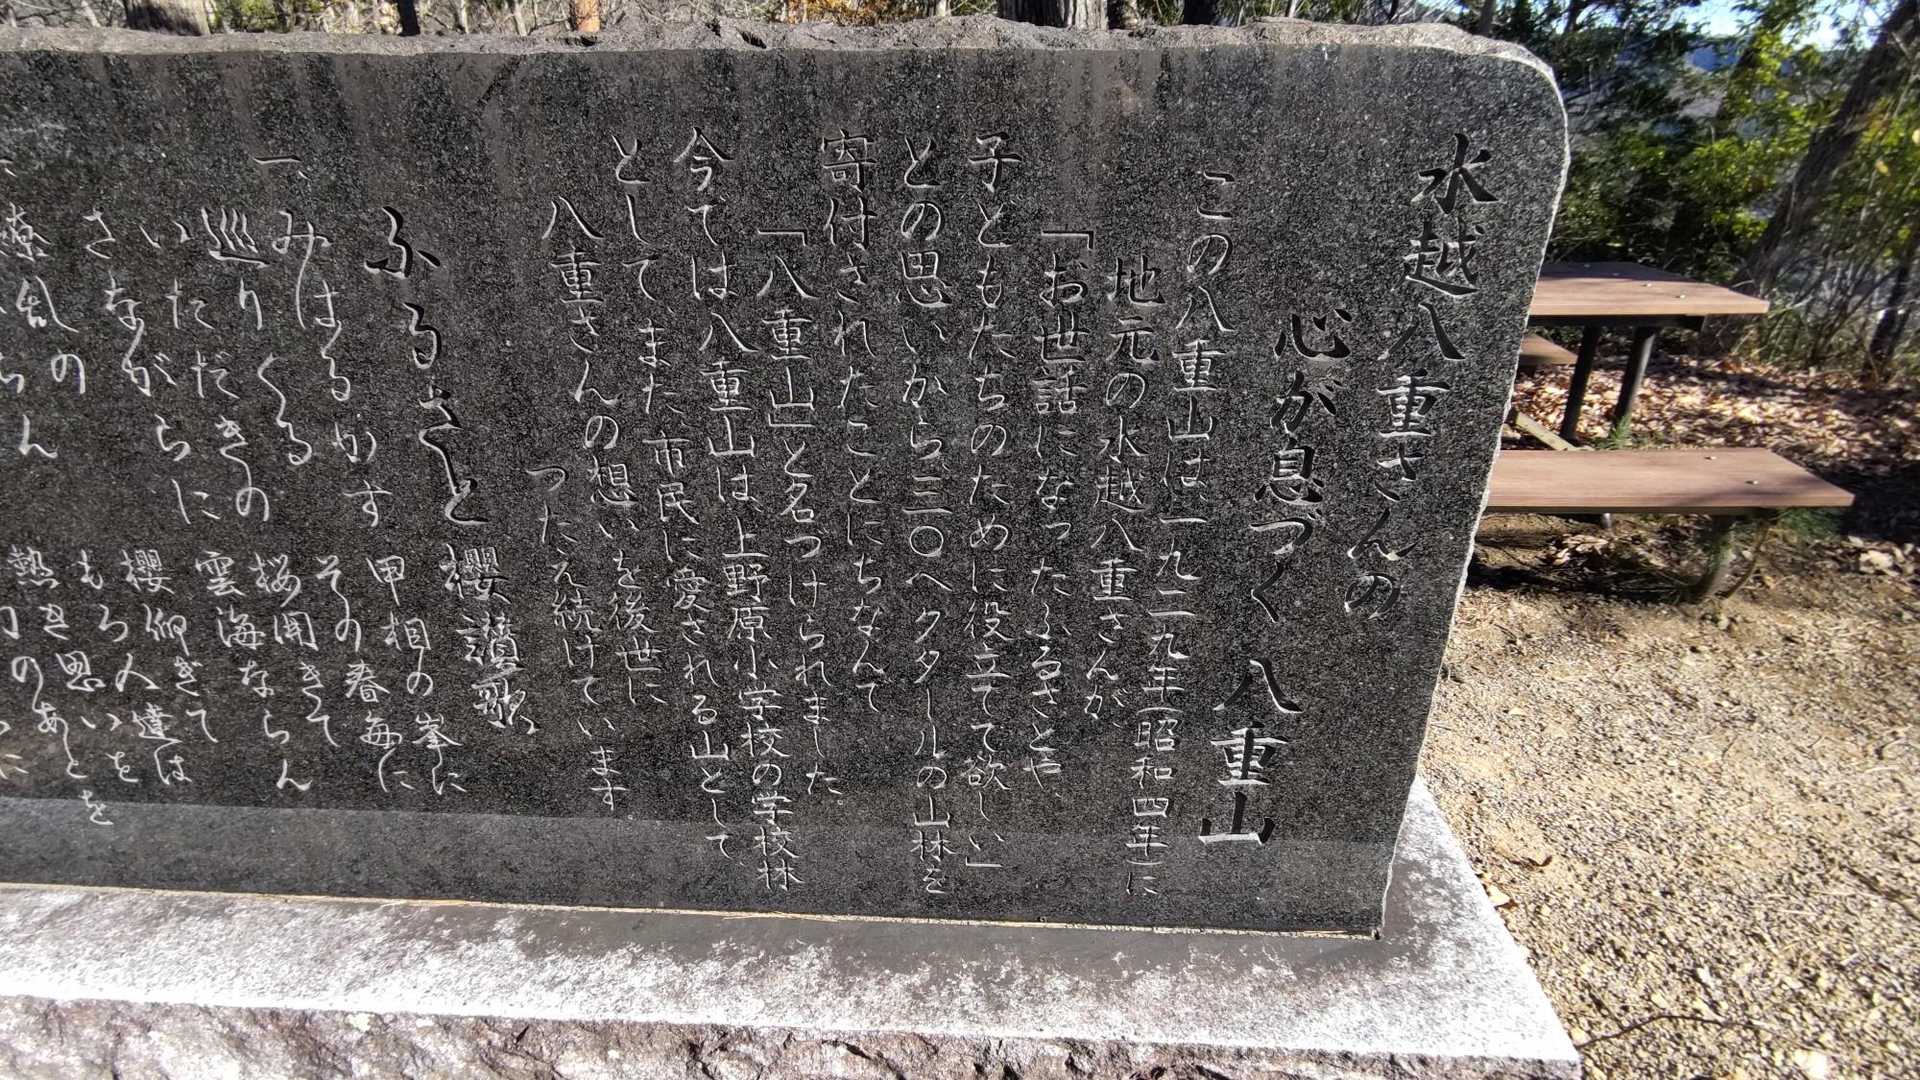 水越八重さんの
心が息づく 八重山
この八重山は、一九二九年(昭和四年)に
地元の水越八重さんが、
「お世話になったふるさとや、
子どもたちのために役立てて欲しい」
との思いから、三〇ヘクタールの山林を
寄付されたことにちなんで
「八重山」と名づけられました。
今では八重山は、上野原小学校の学校林
として、また、市民に愛される山として、
八重さんの想いを後世に
つたえ続けています
ふるさと櫻讃歌
一、
みはるかす 甲相の峯に
巡りくる その春毎に
いただきの 桜開きて
さながらに 雲海ならん
櫻仰ぎて
もろ人達は
熱き思いを